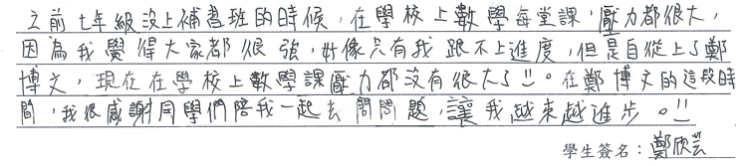 之前七年級沒上補習班的時候，在學校上數學每堂課，壓力都很大，
因為我覺得大家都很強，好像只有我跟不上進度，但是自從上了鄭
博文，現在在學校上數學課壓力都沒有很大了!!。在鄭博文的這段時
間，我很感謝同學們陪我一起去問問題，讓我越來越進步。!!
學生簽名：鄭欣芸